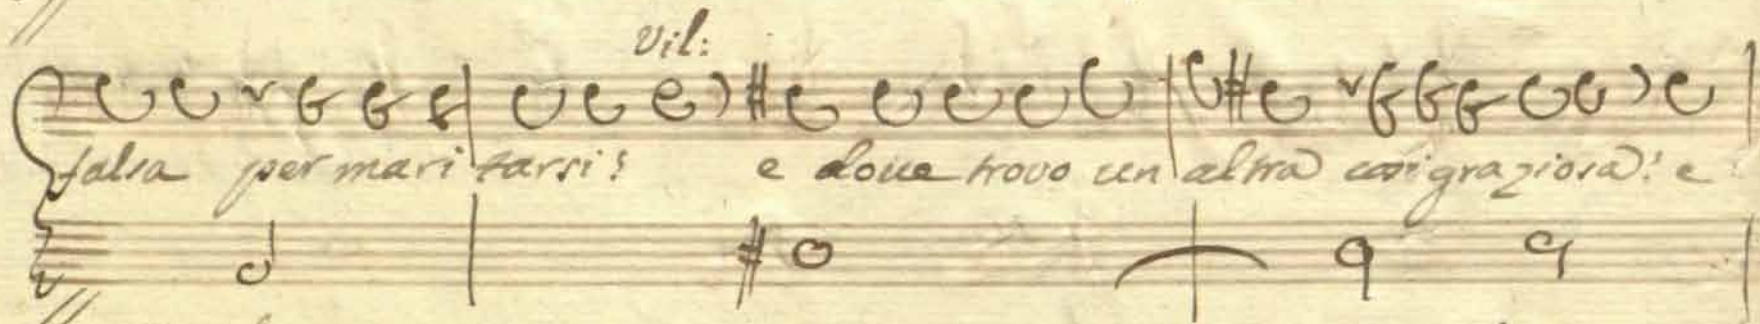 vil:
falsa per mari tarsi! e doue trovo un altra cosi graziosa! e